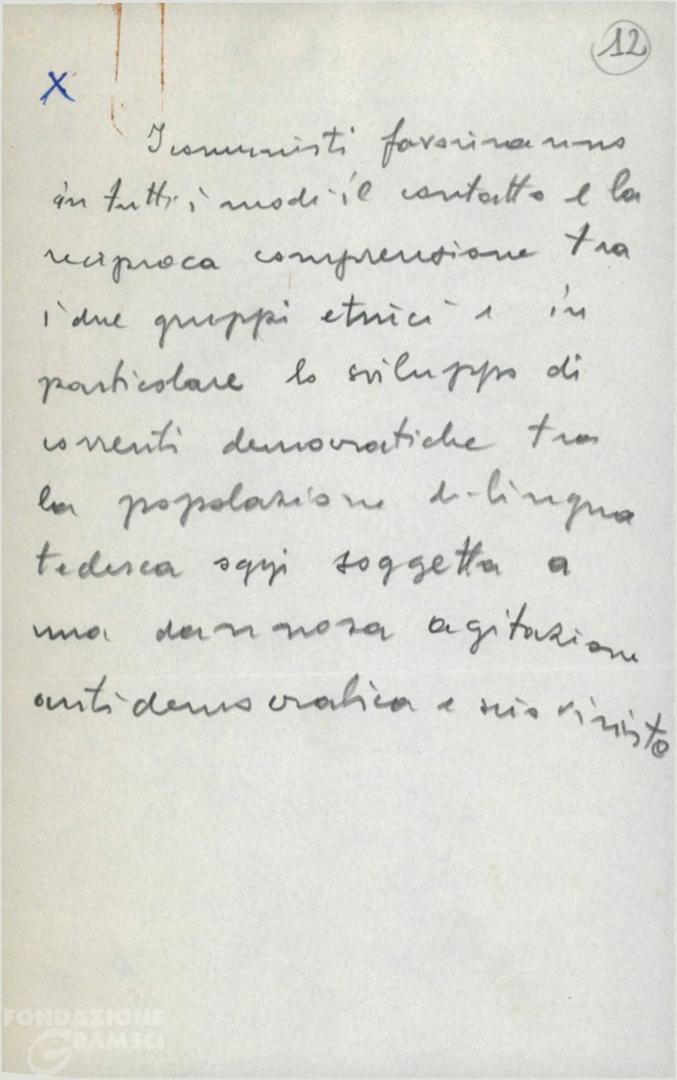 12
X
I comunisti favoriranno
in tutti i modi il contatto e la
reciproca comprensione tra
i due gruppi etnici e in
particolare lo sviluppo di
correnti democratiche tra
la popolazione di lingua
tedesca oggi soggetta a
una dannosa agitazione
antidemocratica e sciovinista
FONDAZIONE
GRAMSCI